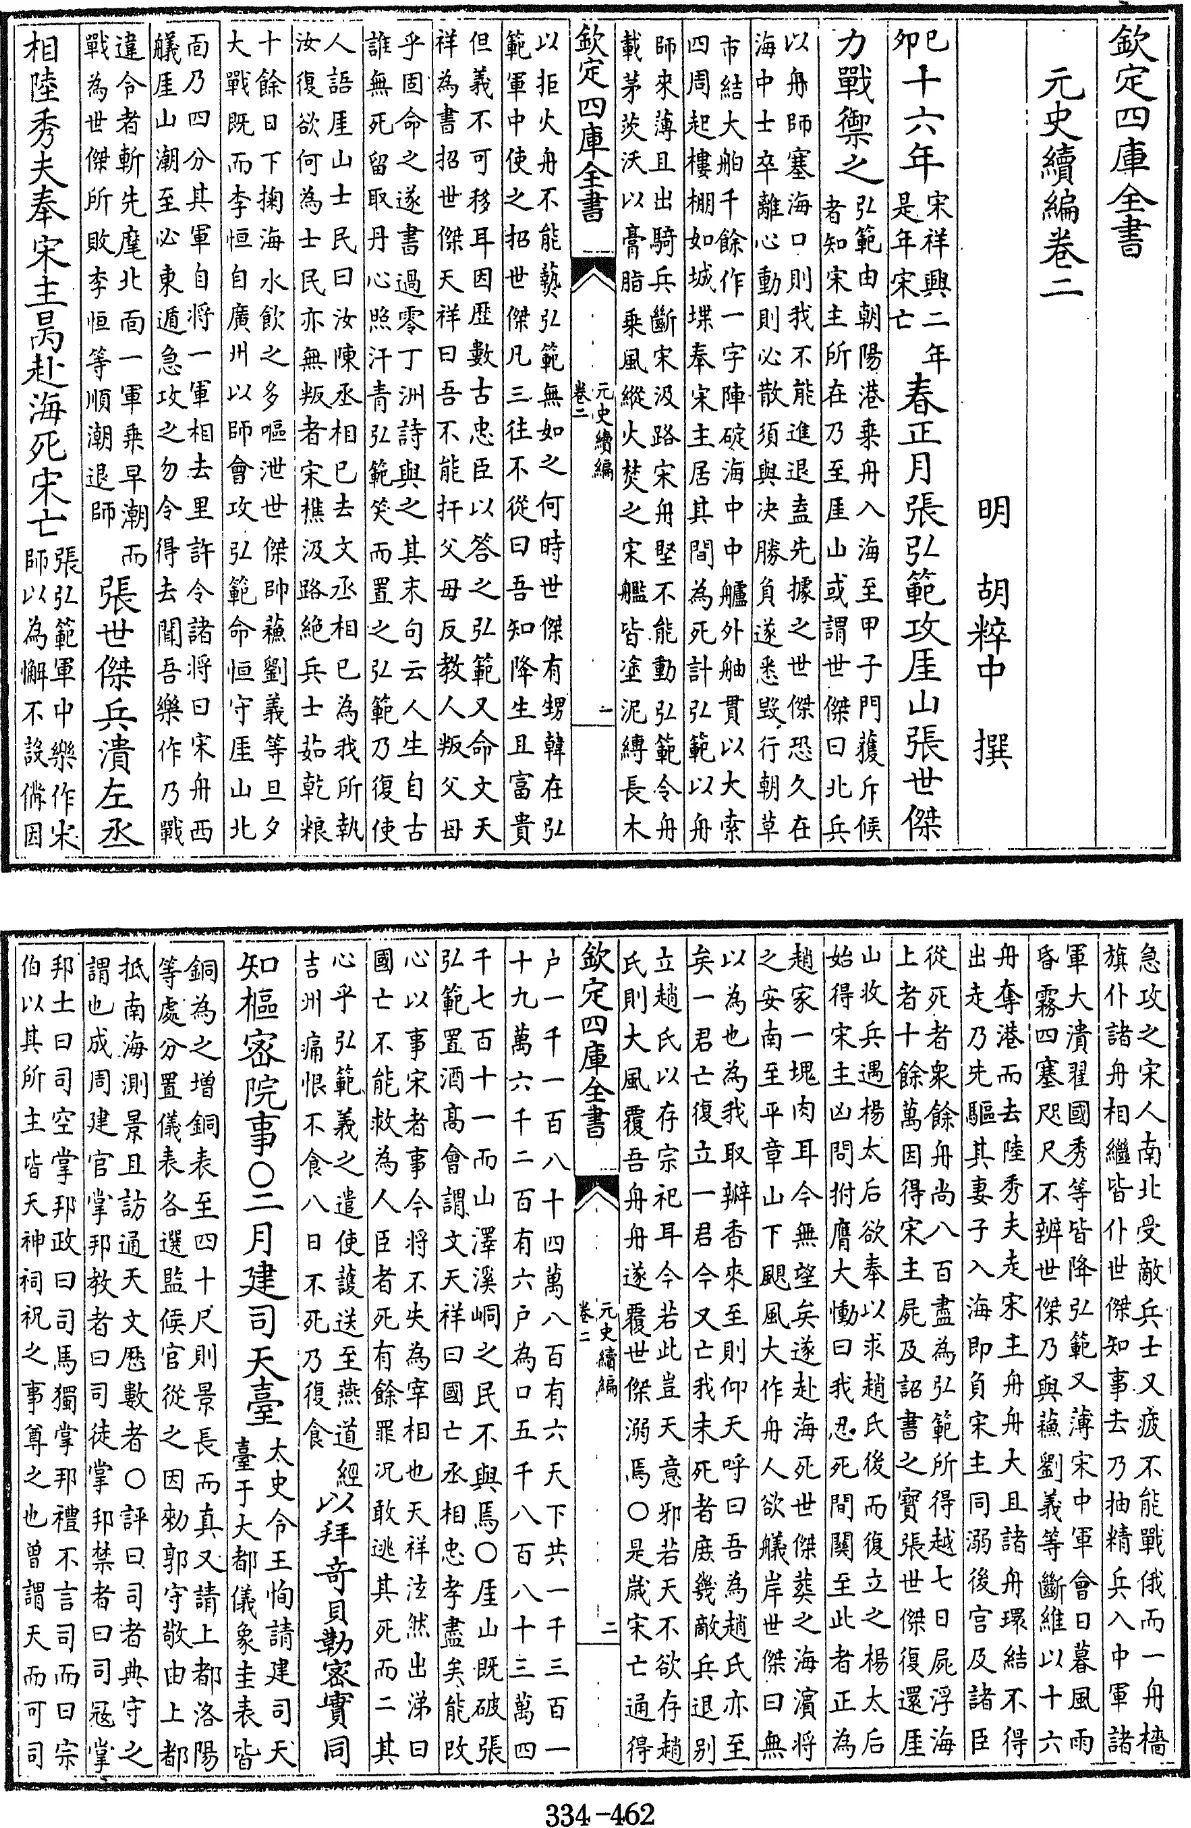 欽定四庫全書
元史續編卷二
明　胡粹中　撰
己卯十六年
宋祥興二年
是年宋亡
春正月張弘範攻厓山張世傑
力戰禦之
弘範由朝陽港乘舟入海至甲子門獲斥候
者知宋主所在乃至厓山或謂世傑曰北兵
以舟師塞海口則我不能進退盍先據之世傑恐久在
海中士卒離心動則必散須與决勝負遂悉毀行朝草
市結大舶千餘作一字陣碇海中中艫外舳貫以大索
四周起樓棚如城堞奉宋主居其間為死計弘範以舟
師來薄且出騎兵斷宋汲路宋舟堅不能動弘範令舟
載茅茨沃以膏脂乘風縱火焚之宋艦皆塗泥縛長木
欽定四庫全書
元史續編
卷二
一
以拒火舟不能爇弘範無如之何時世傑有甥韓在弘
範軍中使之招世傑凡三往不從曰吾知降生且富貴
但義不可移耳因歷數古忠臣以答之弘範又命文天
祥為書招世傑天祥曰吾不能扞父母反教人叛父母
乎固命之遂書過零丁洲詩與之其末句云人生自古
誰無死留取丹心照汗青弘範笑而置之弘範乃復使
人語厓山士民曰汝陳丞相已去文丞相已為我所執
汝復欲何為士民亦無叛者宋樵汲路絶兵士茹乾粮
十餘日下掬海水飲之多嘔泄世傑帥蘇劉義等旦夕
大戰既而李恒自廣州以師會攻弘範命恒守厓山北
面乃四分其軍自將一軍相去里許令諸將曰宋舟西
艤厓山潮至必東遁急攻之勿令得去聞吾樂作乃戰
違令者斬先麾北面一軍乘早潮而
戰為世傑所敗李恒等順潮退師
張世傑兵潰左丞
相陸秀夫奉宋主昺赴海死宋亡
張弘範軍中樂作宋
師以為懈不設備因
急攻之宋人南北受敵兵士又疲不能戰俄而一舟檣
旗仆諸舟相繼皆仆世傑知事去乃抽精兵入中軍諸
軍大潰翟國秀等皆降弘範又薄宋中軍會日暮風雨
昏霧四塞咫尺不辨世傑乃與蘇劉義等斷維以十六
舟奪港而去陸秀夫走宋主舟舟大且諸舟環結不得
出走乃先驅其妻子入海即負宋主同溺後宮及諸臣
從死者衆餘舟尚八百盡為弘範所得越七日屍浮海
上者十餘萬因得宋主屍及詔書之寶張世傑復還厓
山收兵遇楊太后欲奉以求趙氏後而復立之楊太后
始得宋主凶問拊膺大慟曰我忍死間關至此者正為
趙家一塊肉耳今無望矣遂赴海死世傑葬之海濱將
之安南至平章山下颶風大作舟人欲艤岸世傑曰無
以為也為我取瓣香來至則仰天呼曰吾為趙氏亦至
矣一君亡復立一君今又亡我未死者庶幾敵兵退别
立趙氏以存宗祀耳今若此豈天意邪若天不欲存趙
氏則大風覆吾舟舟遂覆世傑溺焉○是歲宋亡通得
欽定四庫全書
元史續編
卷二
二
户一千一百八十四萬八百有六天下共一千三百一
十九萬六千二百有六户為口五千八百八十三萬四
千七百十一而山澤溪峒之民不與焉○厓山既破張
弘範置酒高會謂文天祥曰國亡丞相忠孝盡矣能改
心以事宋者事今將不失為宰相也天祥泫然出涕曰
國亡不能救為人臣者死有餘罪况敢逃其死而二其
心乎弘範義之遣使護送至燕道經
吉州痛恨不食八日不死乃復食
以拜奇貝勒密實同
知樞密院事○二月建司天臺
太史令王恂請建司天
臺于大都儀象圭表皆
銅為之增銅表至四十尺則景長而真又請上都洛陽
等處分置儀表各選監候官從之因勅郭守敬由上都
抵南海測景且訪通天文歷數者○評曰司者典守之
謂也成周建官掌邦教者曰司徒掌邦禁者曰司冦掌
邦土曰司空掌邦政曰司馬獨掌邦禮不言司而曰宗
伯以其所主皆天神祠祝之事尊之也曾謂天而可司
334-462